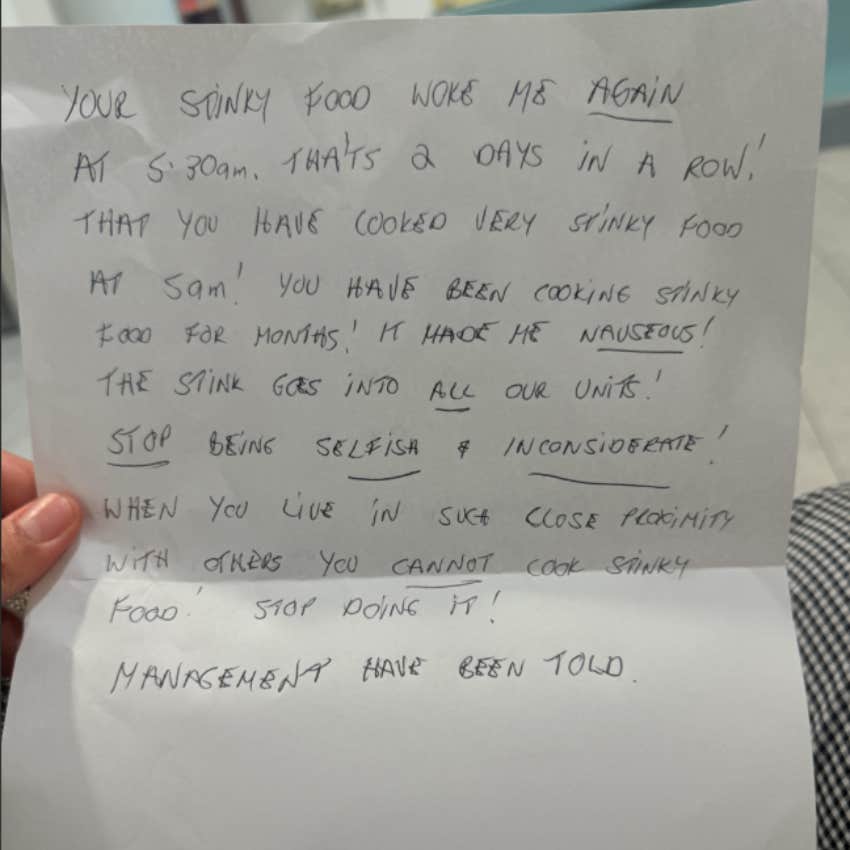 YOUR STINKY FOOD WOKE ME AGAIN
AT 5.30am. THAT'S 2 DAYS IN A ROW!
THAT YOU HAVE COOKED VERY STINKY FOOD
AT 5am! YOU HAVE BEEN COOKING STINKY
FOOD FOR MONTHS! IT MADE ME NAUSEOUS!
THE STINK GOES INTO ALL OUR UNITS!
STOP BEING SELFISH & INCONSIDERATE!
WHEN YOU LIVE IN SUCH CLOSE PROXIMITY
WITH OTHERS YOU CANNOT COOK STINKY
FOOD! STOP DOING IT!
MANAGEMENT HAVE BEEN TOLD.